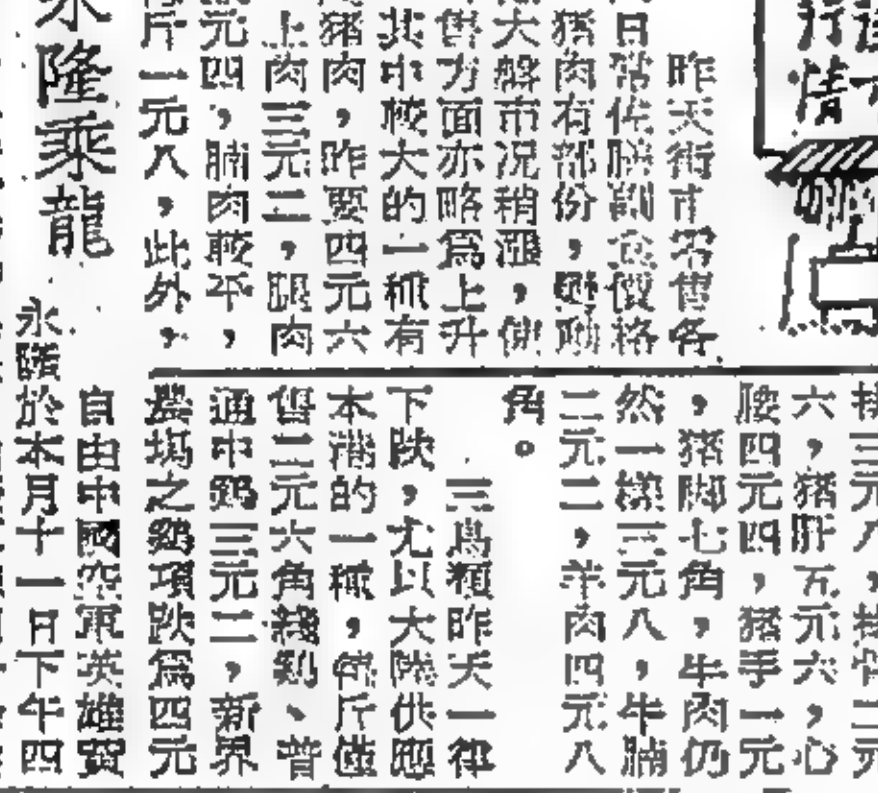 行情
昨天街市零售各
日常佐膳副食價格
猪肉有部份
大盤市况稍漲，
售方面亦略爲上升
其中較大的一種有
猪肉，昨要四元六
上肉三元二，腿肉
元四，腩肉較平，
斤一元八，此外，
排三元八，
六，猪肝五元六，心
腰四元四，猪手一元
，猪脚七角，牛肉仍
然一樣三元八，牛腩
二元二，羊肉四元八
角。
三鳥類昨天一律
下跌，尤以大陸供應
本港的一種，每斤僅
售二元六角綫鷄、普
通中鷄三元二，新界
農塲之鷄項跌爲四元
永隆乘龍
自由中國空軍英雄
永隆於本月十一日下午四